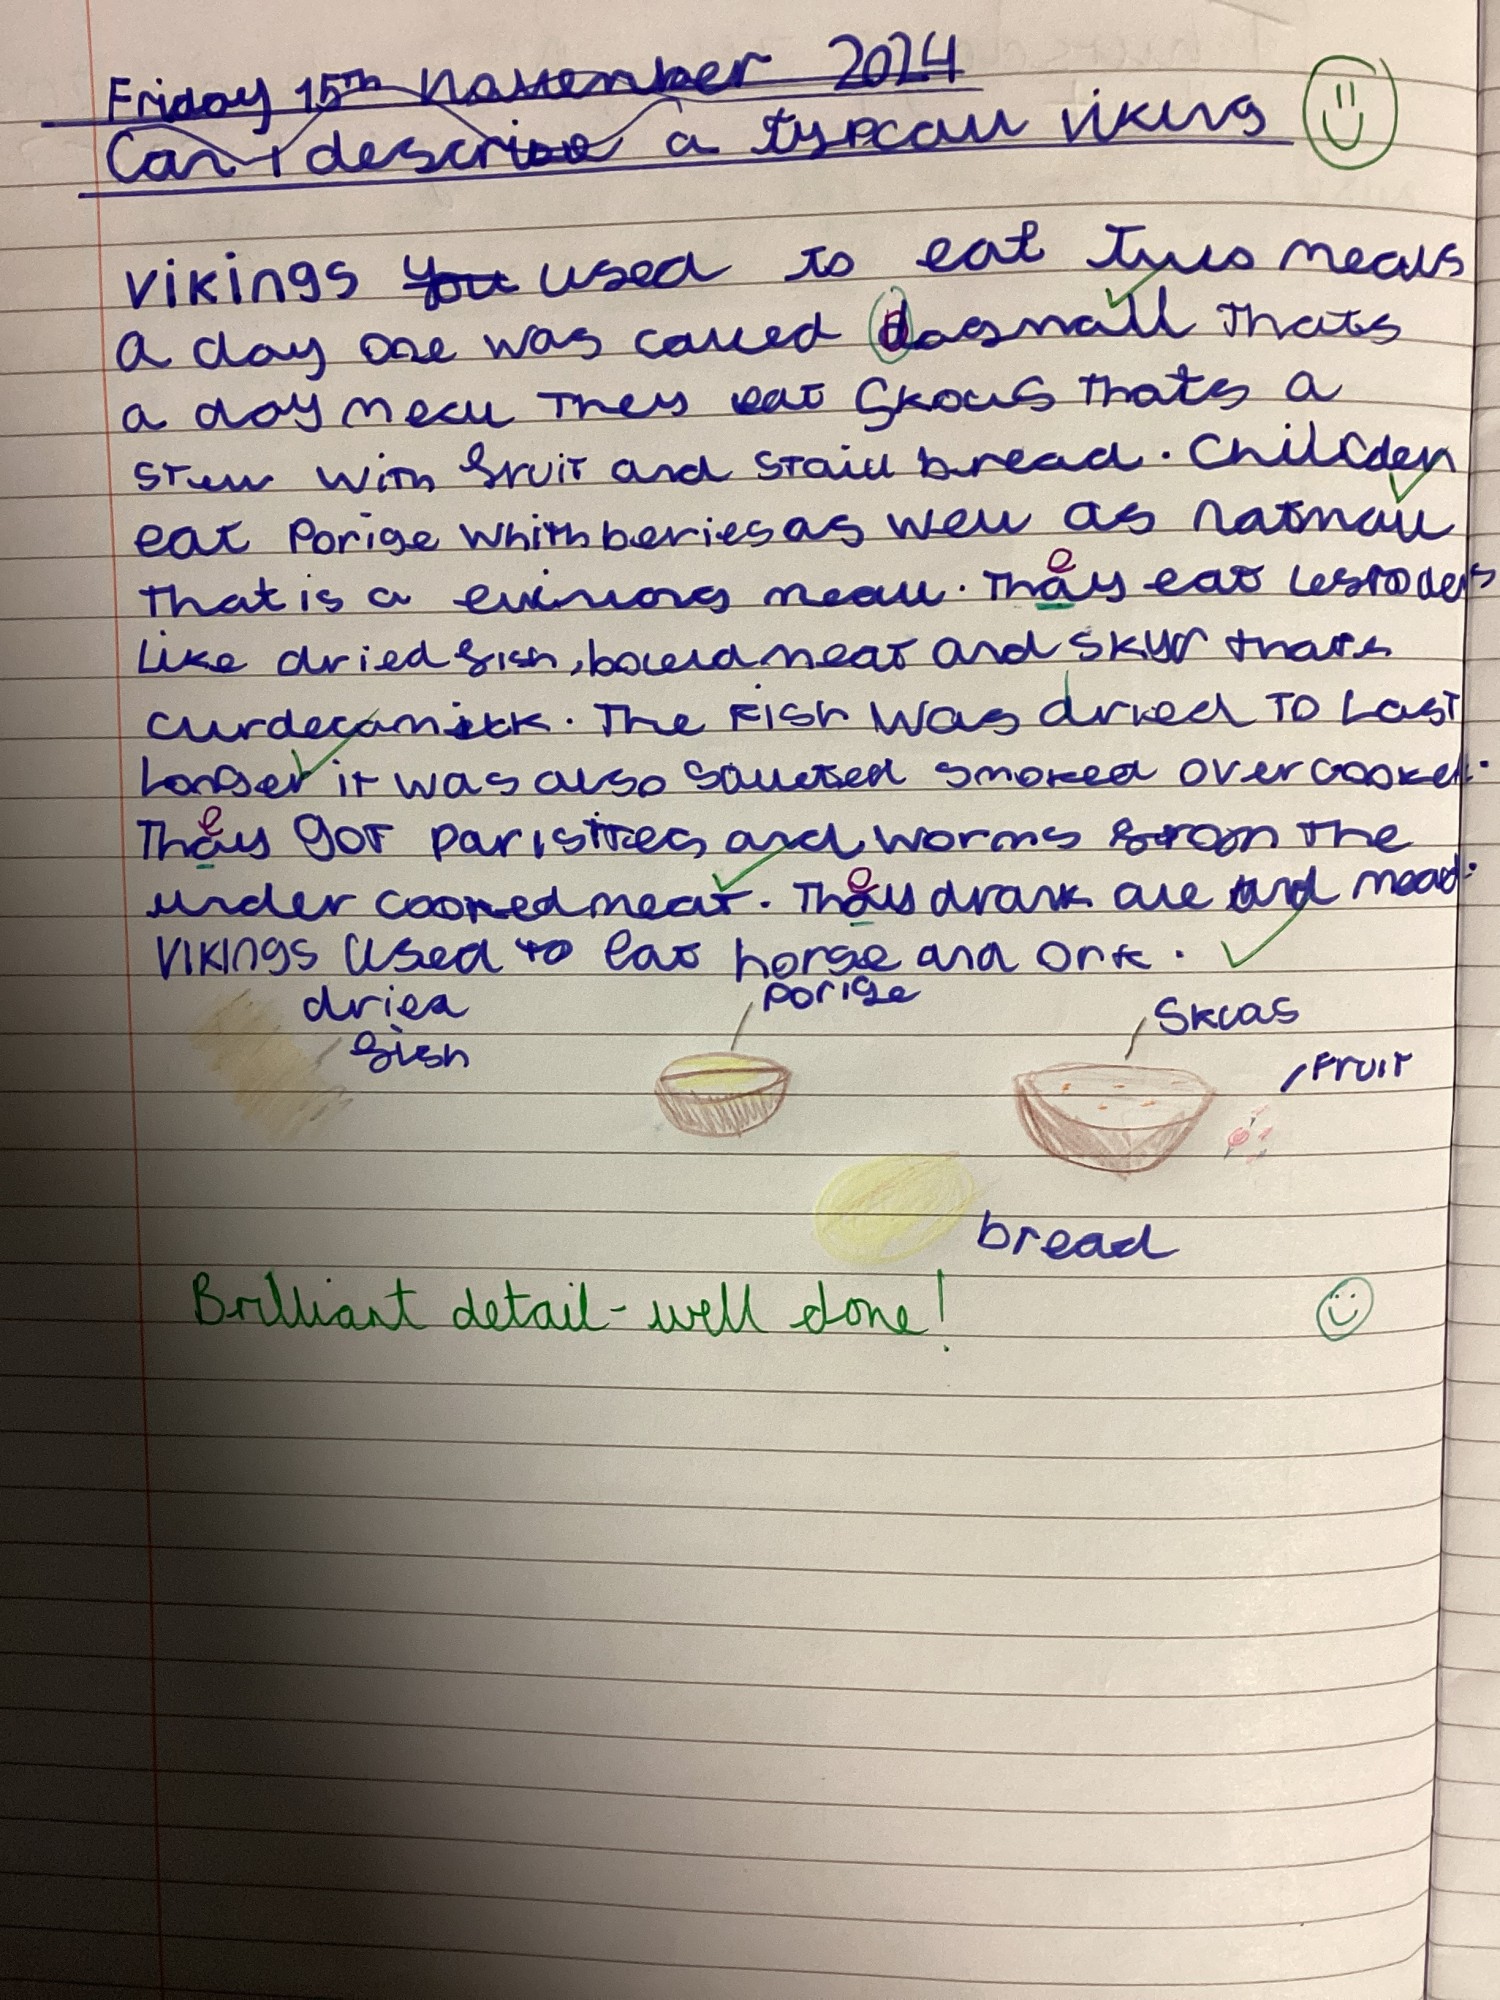 Friday 15th November 2024
Can I describe a typcall viking
Vikings you used to eat two meals
a day one was called dagmall thats
a day meal They eat Skous thats a
stew with fruit and stail bread. Chilrden
eat Porige whith beries as well as natmall
that is a evining meall. They eat lestoders
Like dried fish, boield meat and skyr thats
curdecamilk. The Fish was dried To Last
Longer it was also saulted smoked over cooked.
They got paristites and worms from The
under cooked meat. They drank ale and mead.
Vikings Used to eat horse and ork.
dried
fish
porige
Skuas
Fruit
bread
Brilliant detail - well done!